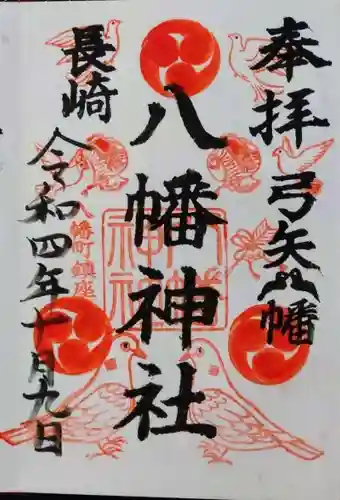 奉拝 弓矢八幡
八幡神社
長崎
八幡町鎮座
令和四年十月九日